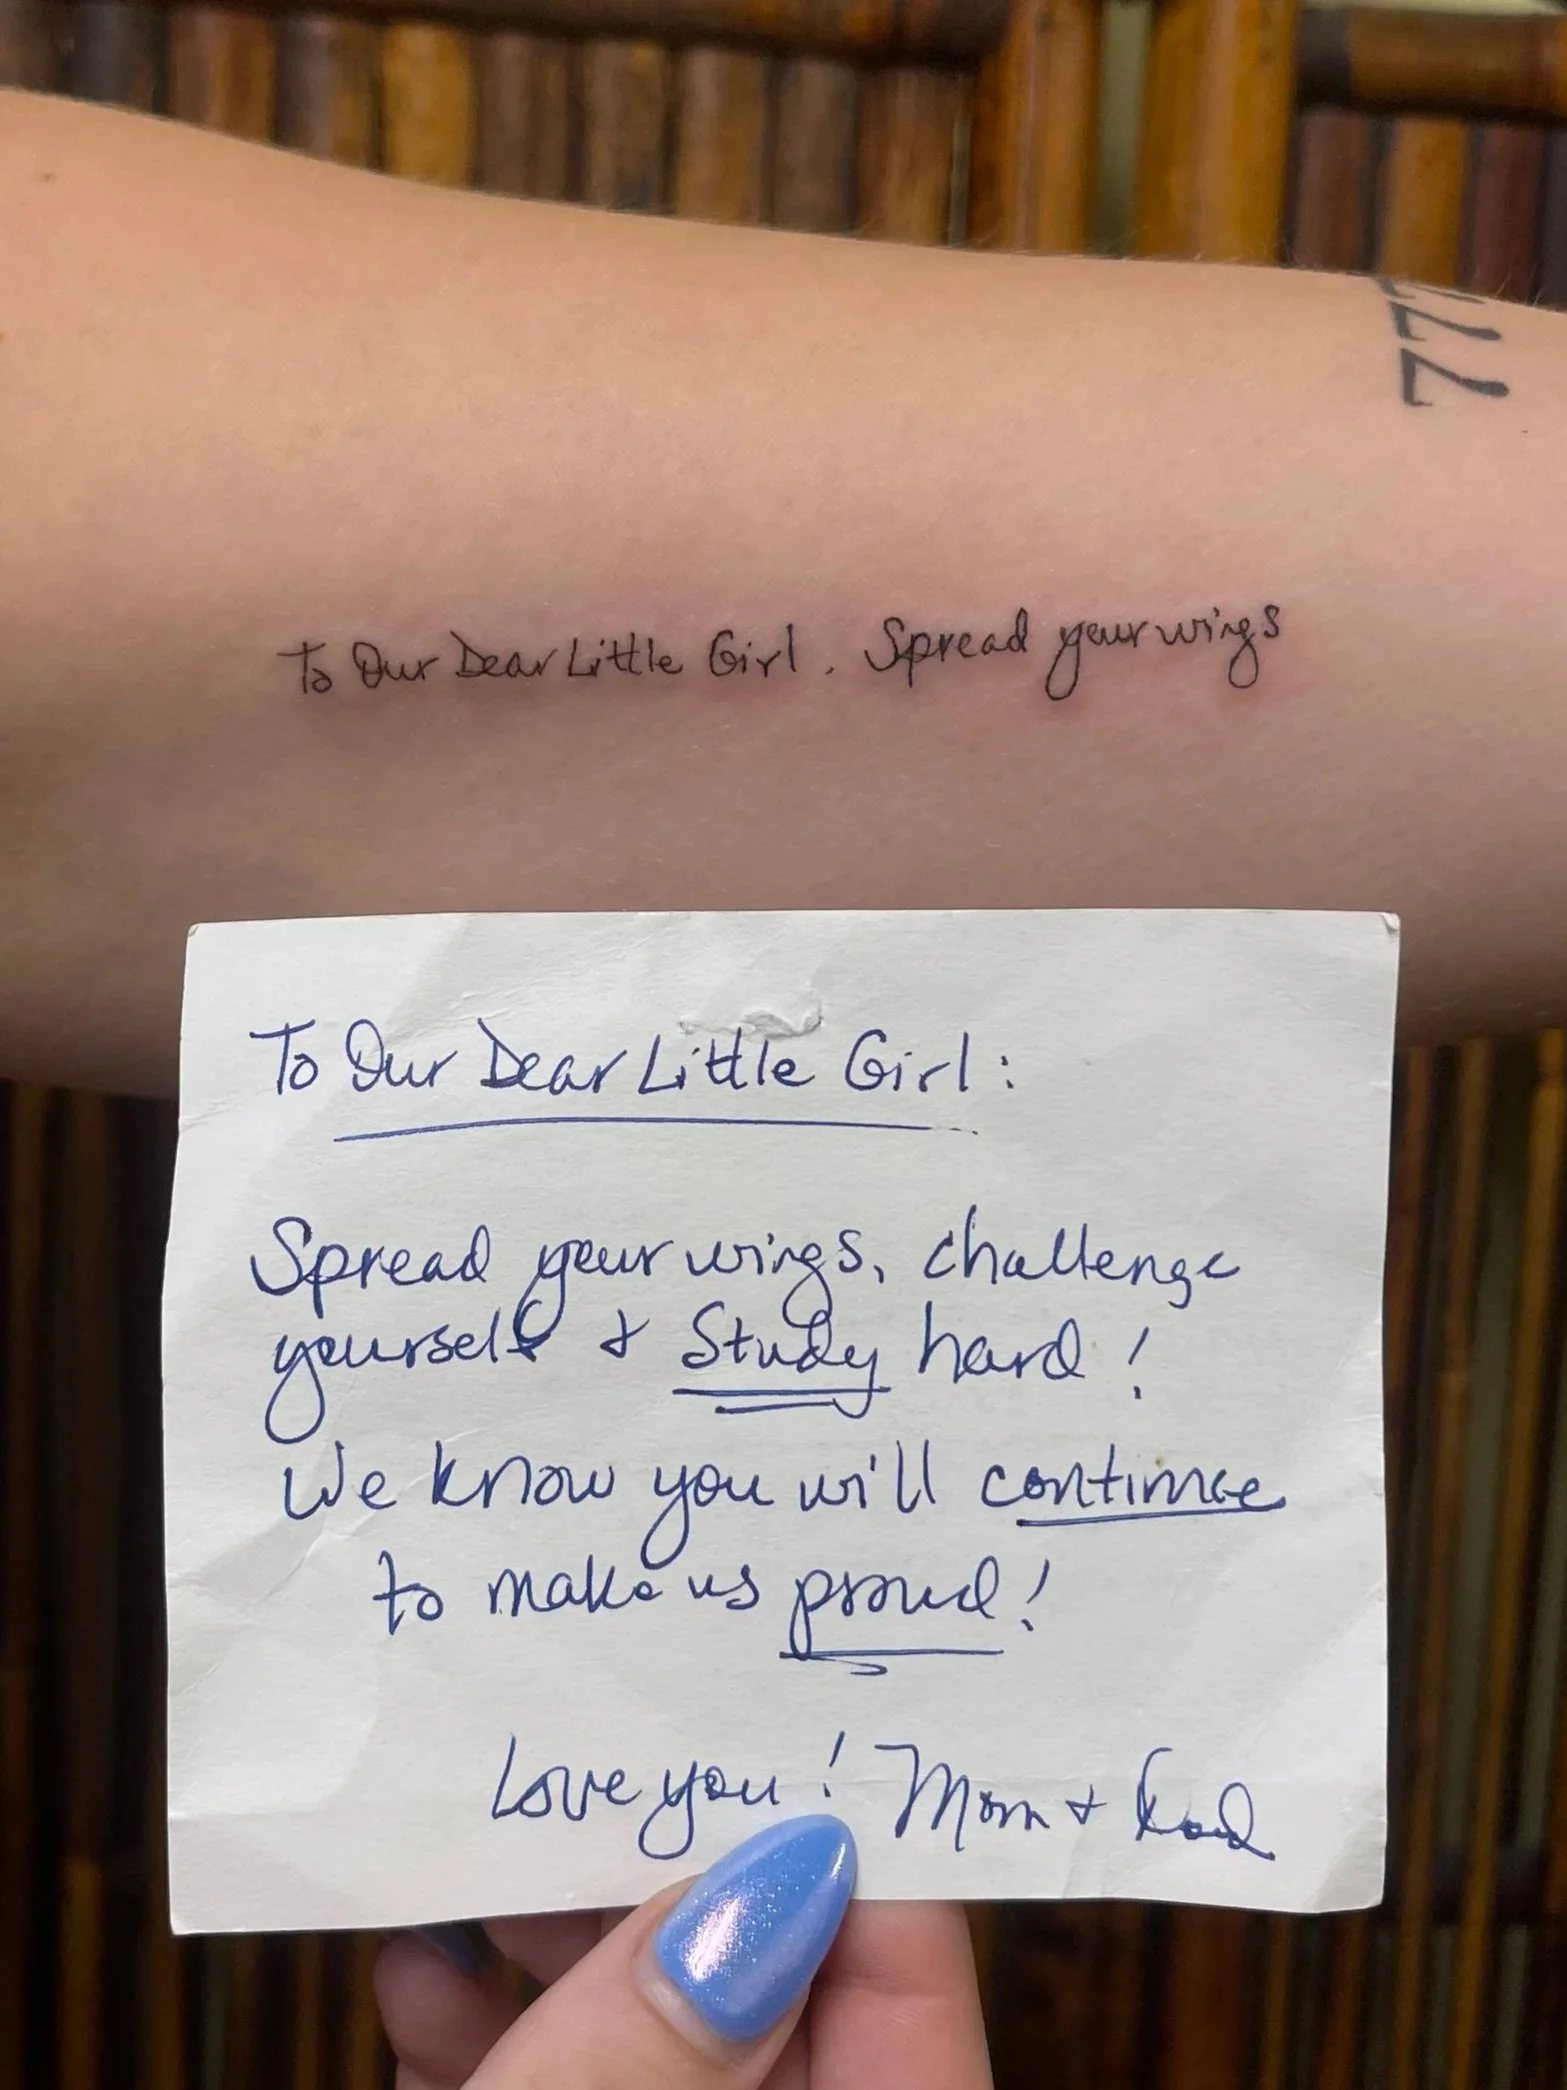 777
To Our Dear Little Girl. Spread your wings
To Our Dear Little Girl:
Spread your wings, challenge
yourself & Study hard!
We know you will continue
to make us proud!
Love you! Mom & Dad